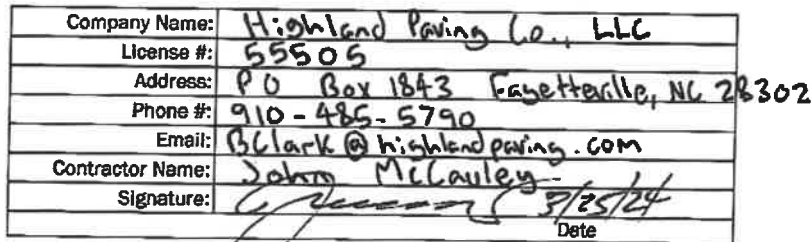 Company Name: Highland Paving Co., LLC
License #: 55505
Address: PO Box 1843 Fayetteville, NC 28302
Phone #: 910-485-5790
Email: BClark@highlandpaving.com
Contractor Name: John McCauley
Signature: 3/25/24
Date